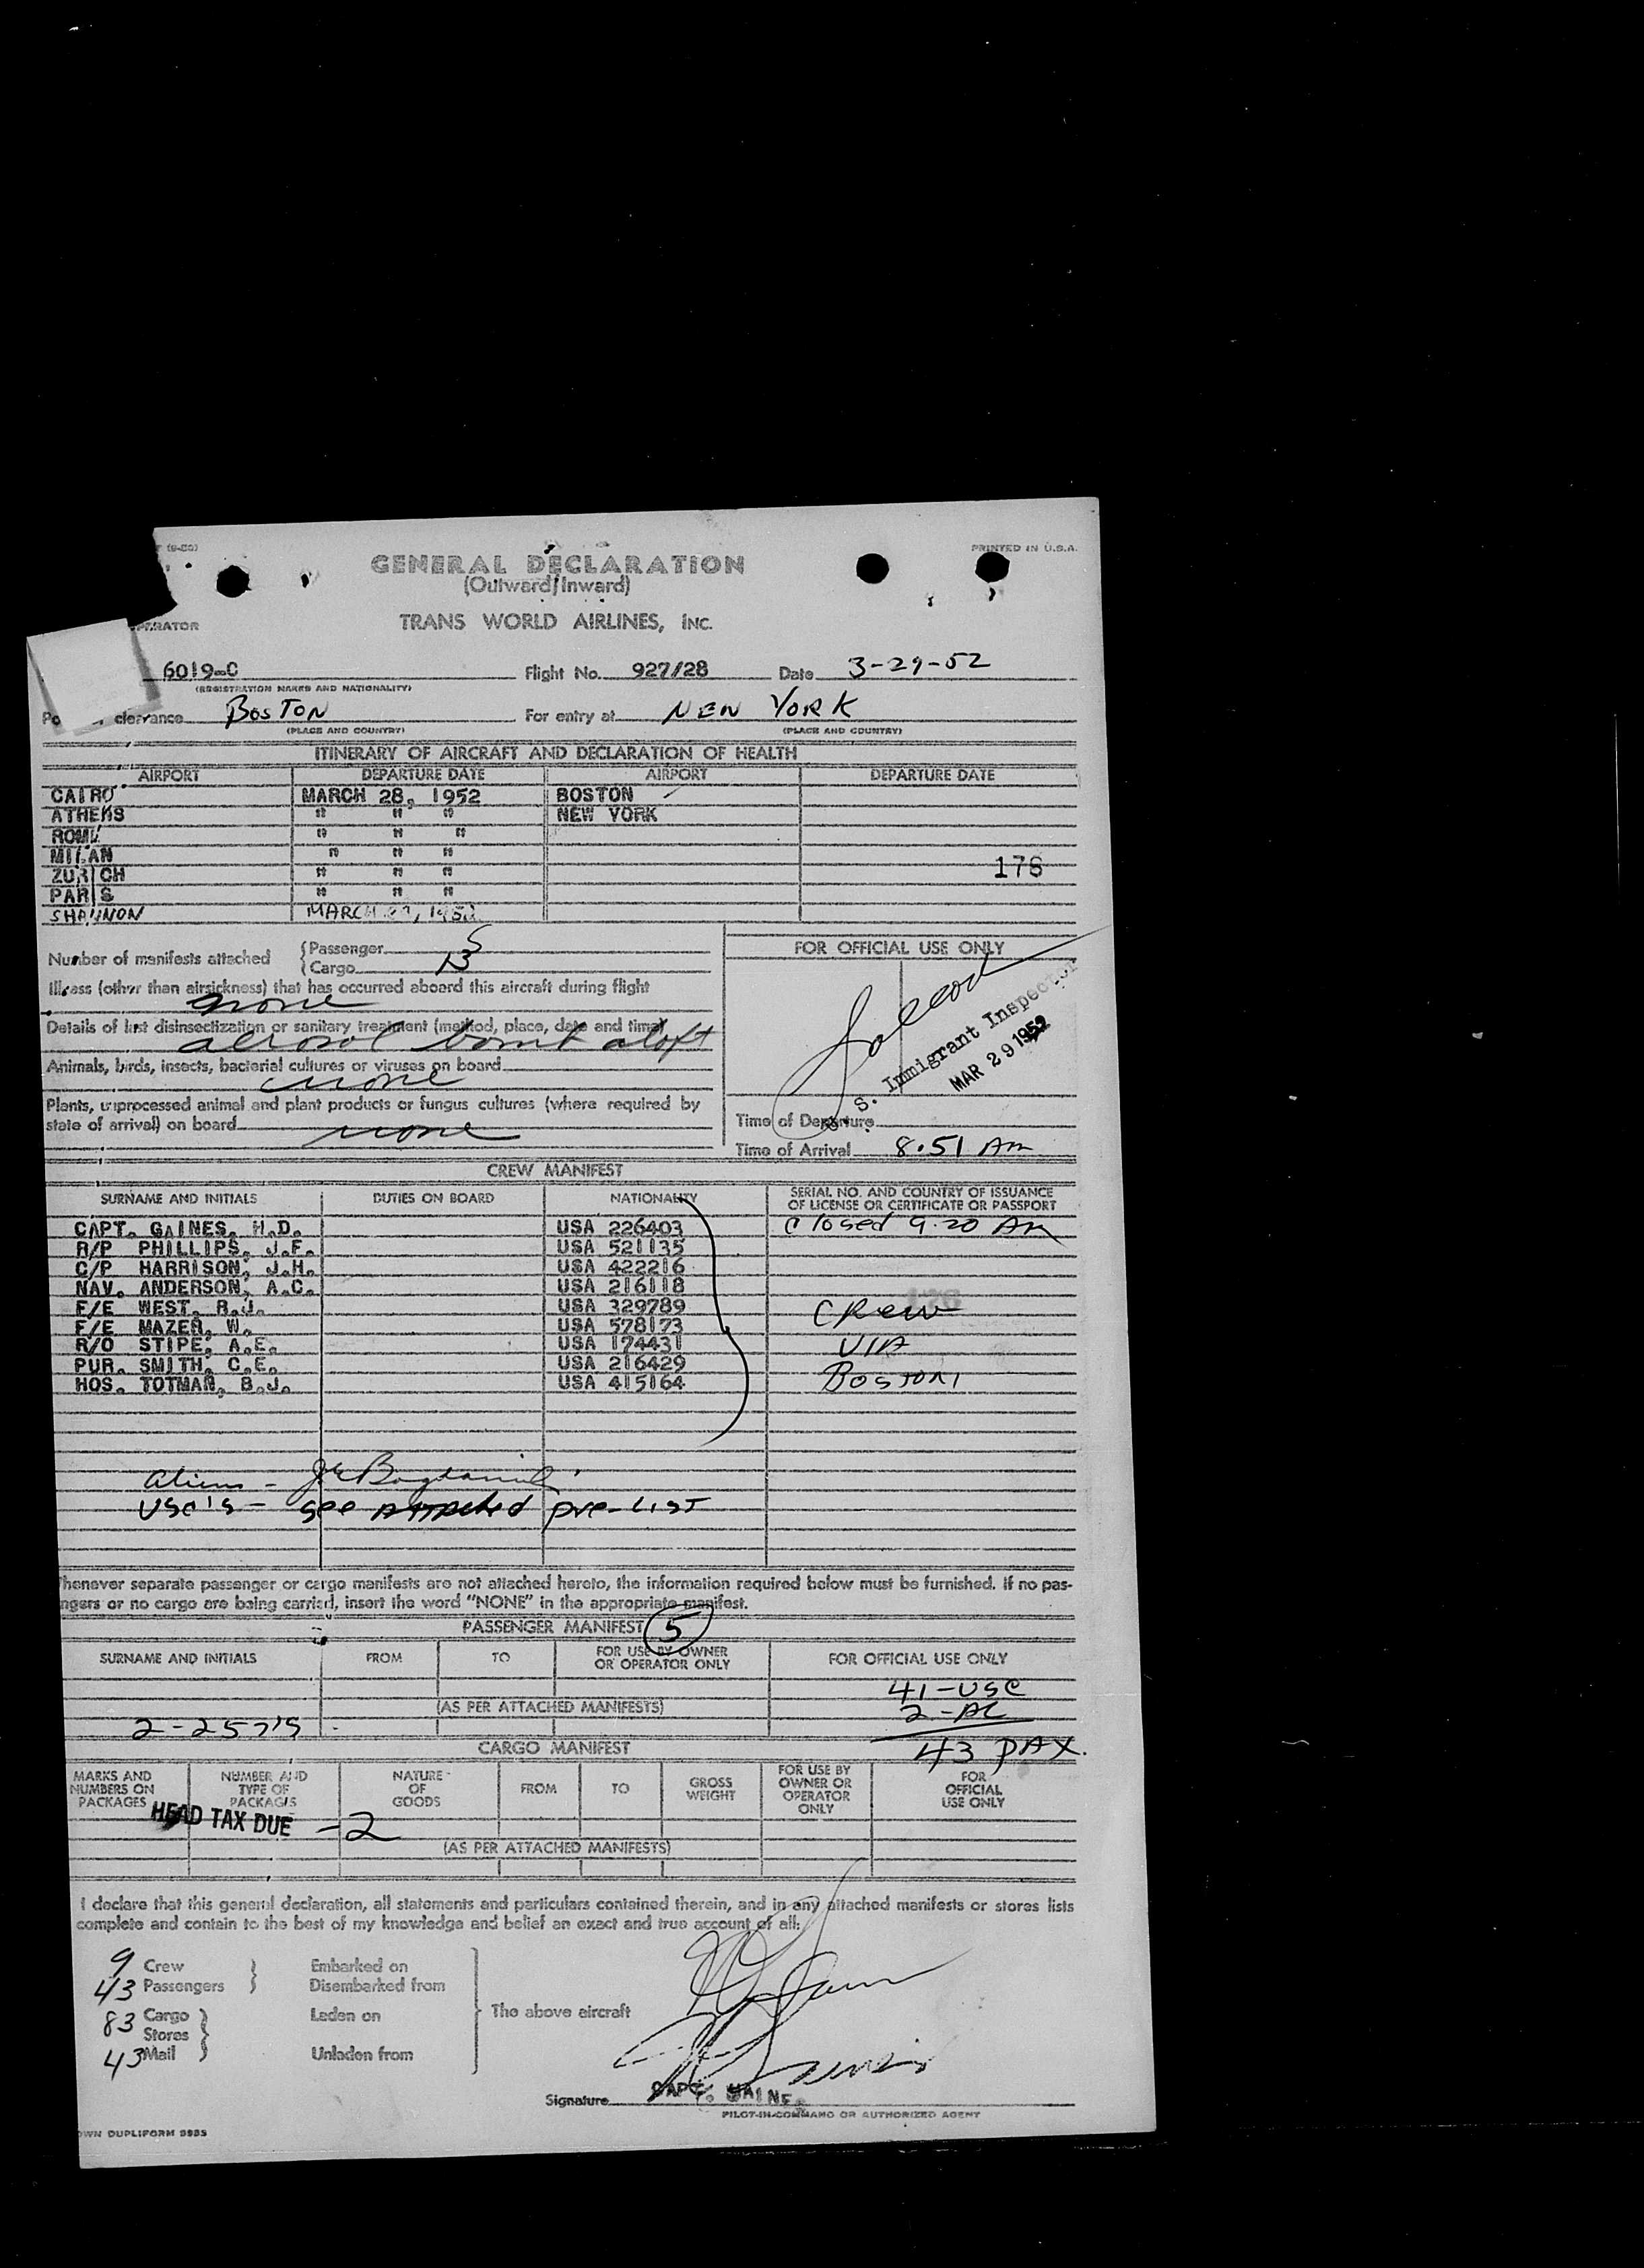 (9-50)
PRINTED IN U.S.A.
GENERAL DECLARATION
(Outward/Inward)
TRANS WORLD AIRLINES, INC.
6019-C Flight No. 927/28 Date 3-29-52
(REGISTRATION MARKS AND NATIONALITY)
clearance BOSTON For entry at NEW YORK
(PLACE AND COUNTRY) (PLACE AND COUNTRY)
ITINERARY OF AIRCRAFT AND DECLARATION OF HEALTH
AIRPORT DEPARTURE DATE AIRPORT DEPARTURE DATE
CAIRO MARCH 28, 1952 BOSTON
ATHENS " " " NEW YORK
ROME " " "
MILAN " " "
ZURICH " " " 176
PARIS " " "
SHANNON MARCH 29, 1952
Number of manifests attached
Passenger 5
Cargo 13
FOR OFFICIAL USE ONLY
Illness (other than airsickness) that has occurred aboard this aircraft during flight
none
Details of last disinsectization or sanitary treatment (method, place, date and time)
aerosol bomb aloft
Animals, birds, insects, bacterial cultures or viruses on board
none
Plants, unprocessed animal and plant products or fungus cultures (where required by
state of arrival) on board none
S. Immigrant Inspector
MAR 29 1952
Time of Departure
Time of Arrival 8.51 AM
CREW MANIFEST
SURNAME AND INITIALS DUTIES ON BOARD NATIONALITY SERIAL NO. AND COUNTRY OF ISSUANCE
OF LICENSE OR CERTIFICATE OR PASSPORT
CAPT. GAINES, H.D. USA 226403 Closed 9.20 AM
R/P PHILLIPS, J.F. USA 521135
C/P HARRISON, J.H. USA 422216
NAV. ANDERSON, A.C. USA 216118
F/E WEST, R.J. USA 329789 Crew
F/E MAZER, W. USA 578173
R/O STIPE, A.E. USA 174431 VIA
PUR. SMITH, C.E. USA 216429
HOS. TOTMAN, B.J. USA 415164 Boston
Aliens -
USC's - see attached pre-List
Whenever separate passenger or cargo manifests are not attached hereto, the information required below must be furnished. If no pas-
ngers or no cargo are being carried, insert the word "NONE" in the appropriate manifest.
PASSENGER MANIFEST 5
SURNAME AND INITIALS FROM TO FOR USE BY OWNER
OR OPERATOR ONLY FOR OFFICIAL USE ONLY
41-USC
(AS PER ATTACHED MANIFESTS) 2-AL
2-257's
CARGO MANIFEST 43 PAX.
MARKS AND NUMBERS ON PACKAGES NUMBER AND TYPE OF PACKAGES NATURE OF GOODS FROM TO GROSS WEIGHT FOR USE BY OWNER OR OPERATOR ONLY FOR OFFICIAL USE ONLY
HEAD TAX DUE -2
(AS PER ATTACHED MANIFESTS)
I declare that this general declaration, all statements and particulars contained therein, and in any attached manifests or stores lists
complete and contain to the best of my knowledge and belief an exact and true account of all:
9 Crew Embarked on
43 Passengers Disembarked from
83 Cargo Laden on The above aircraft
Stores
43 Mail Unladen from
Signature CAPT. GAINES
PILOT-IN-COMMAND OR AUTHORIZED AGENT
OWN DUPLIFORM